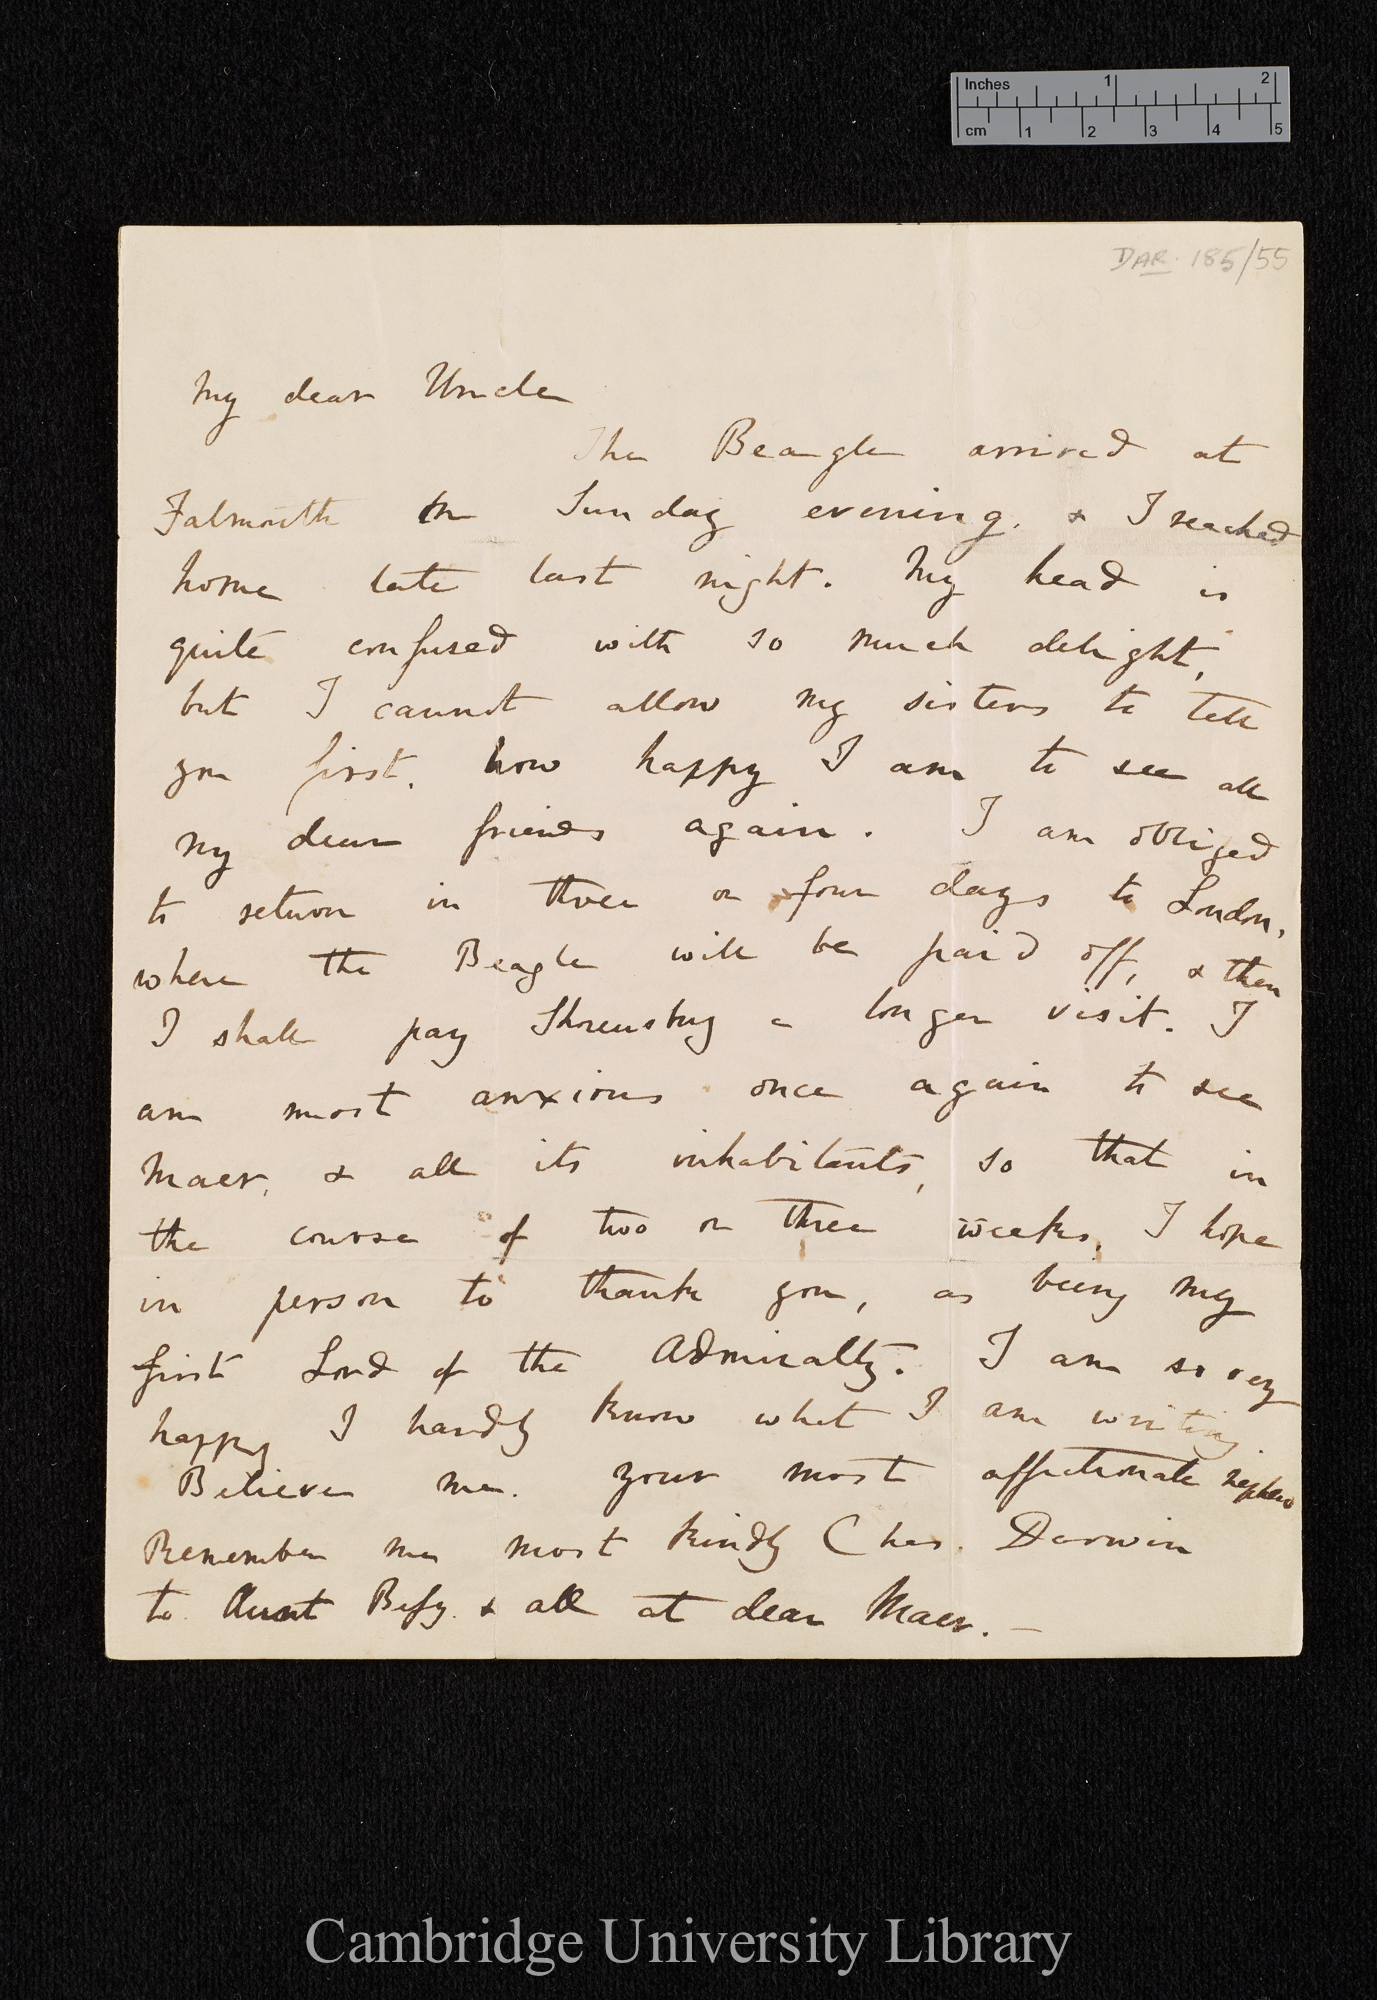 Inches 1 2
cm 1 2 3 4 5
DAR. 185/55
My dear Uncle
The Beagle arrived at
Falmouth on Sunday evening. & I reached
home late last night. My head is
quite confused with so much delight,
but I cannot allow my sisters to tell
you first. how happy I am to see all
my dear friends again. I am obliged
to return in three or four days to London,
where the Beagle will be paid off, & then
I shall pay Shrewsbury a longer visit. I
am most anxious once again to see
Maer, & all its inhabitants, so that in
the course of two or three weeks, I hope
in person to thank you, as being my
first Lord of the Admiralty. I am so very
happy I hardly know what I am writing
Believe me. your most affectionate nephew
Remember me most kindly Chas. Darwin
to Aunt Bessy. & all at dear Maer. —
Cambridge University Library